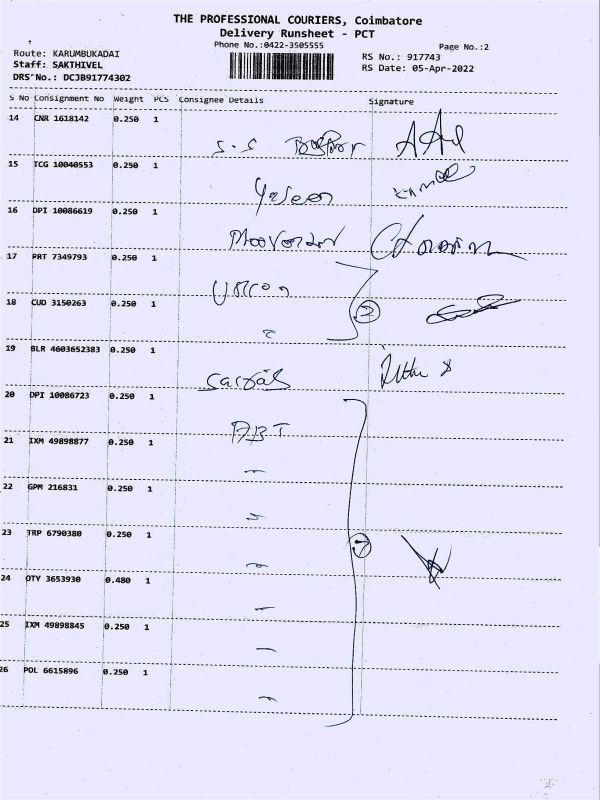 THE PROFESSIONAL COURIERS, Coimbatore
Delivery Runsheet - PCT
Phone No.:0422-3505555
Page No.:2
Route: KARUMBUKADAI
RS No.: 917743
Staff: SAKTHIVEL
RS Date: 05-Apr-2022
DRS No.: DCJB91774302
S No Consignment No Weight PCS Consignee Details Signature
14 CNR 1618142 0.250 1
S.S
15 TCG 10040553 0.250 1
Yaseen
16 DPI 10086619 0.250 1
17 PRT 7349793 0.250 1
18 CUD 3150263 0.250 1
2
19 BLR 4603652383 0.250 1
20 DPI 10086723 0.250 1
ABT
21 IXM 49898877 0.250 1
22 GPM 216831 0.250 1
23 TRP 6790380 0.250 1
7
24 OTY 3653930 0.480 1
25 IXM 49898845 0.250 1
26 POL 6615896 0.250 1